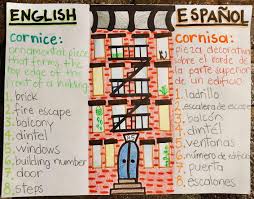 ENGLISH
cornice:
ornamental piece
that forms the
top edge of the
front of a building
1. brick
2. fire escape
3. balcony
4. dintel
5. windows
6. building number
7. door
8. steps
ESPAÑOL
cornisa:
pieza decorativa
sobre el borde de
la parte superior
de un edificio
1. ladrillo
2. escalera de escape
3. balcón
4. dintel
5. ventanas
6. número de edificio
7. puerta
8. escalones